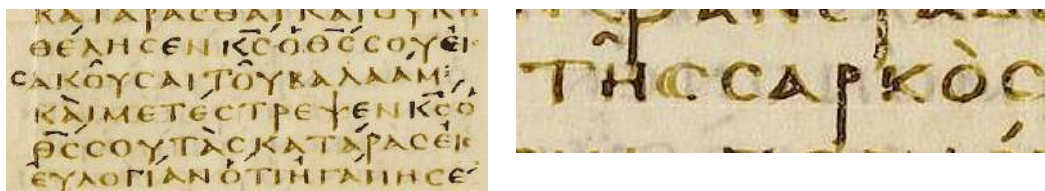 ΚΑΤΑΡΑϹΘΑΙΚΑΙΟΥΚΗ
ΘΈΛΗϹΕΝΚ̅Ϲ̅ὉΘ̅Ϲ̅ϹΟΥΕΙ
ϹΑΚΟῦϹΑΙΤΟῦΒΑΛΑΆΜ:
ΚΑῚΜΕΤΈϹΤΡΕΨΕΝΚ̅Ϲ̅Ὁ
Θ̅Ϲ̅ϹΟΥΤᾺϹΚΑΤΆΡΑϹΕἸϹ
ΕΥ̓ΛΟΓΊΑΝὍΤΙἨΓΆΠΗϹΕ
ΤΗ͂ϹϹΑΡΚῸϹ